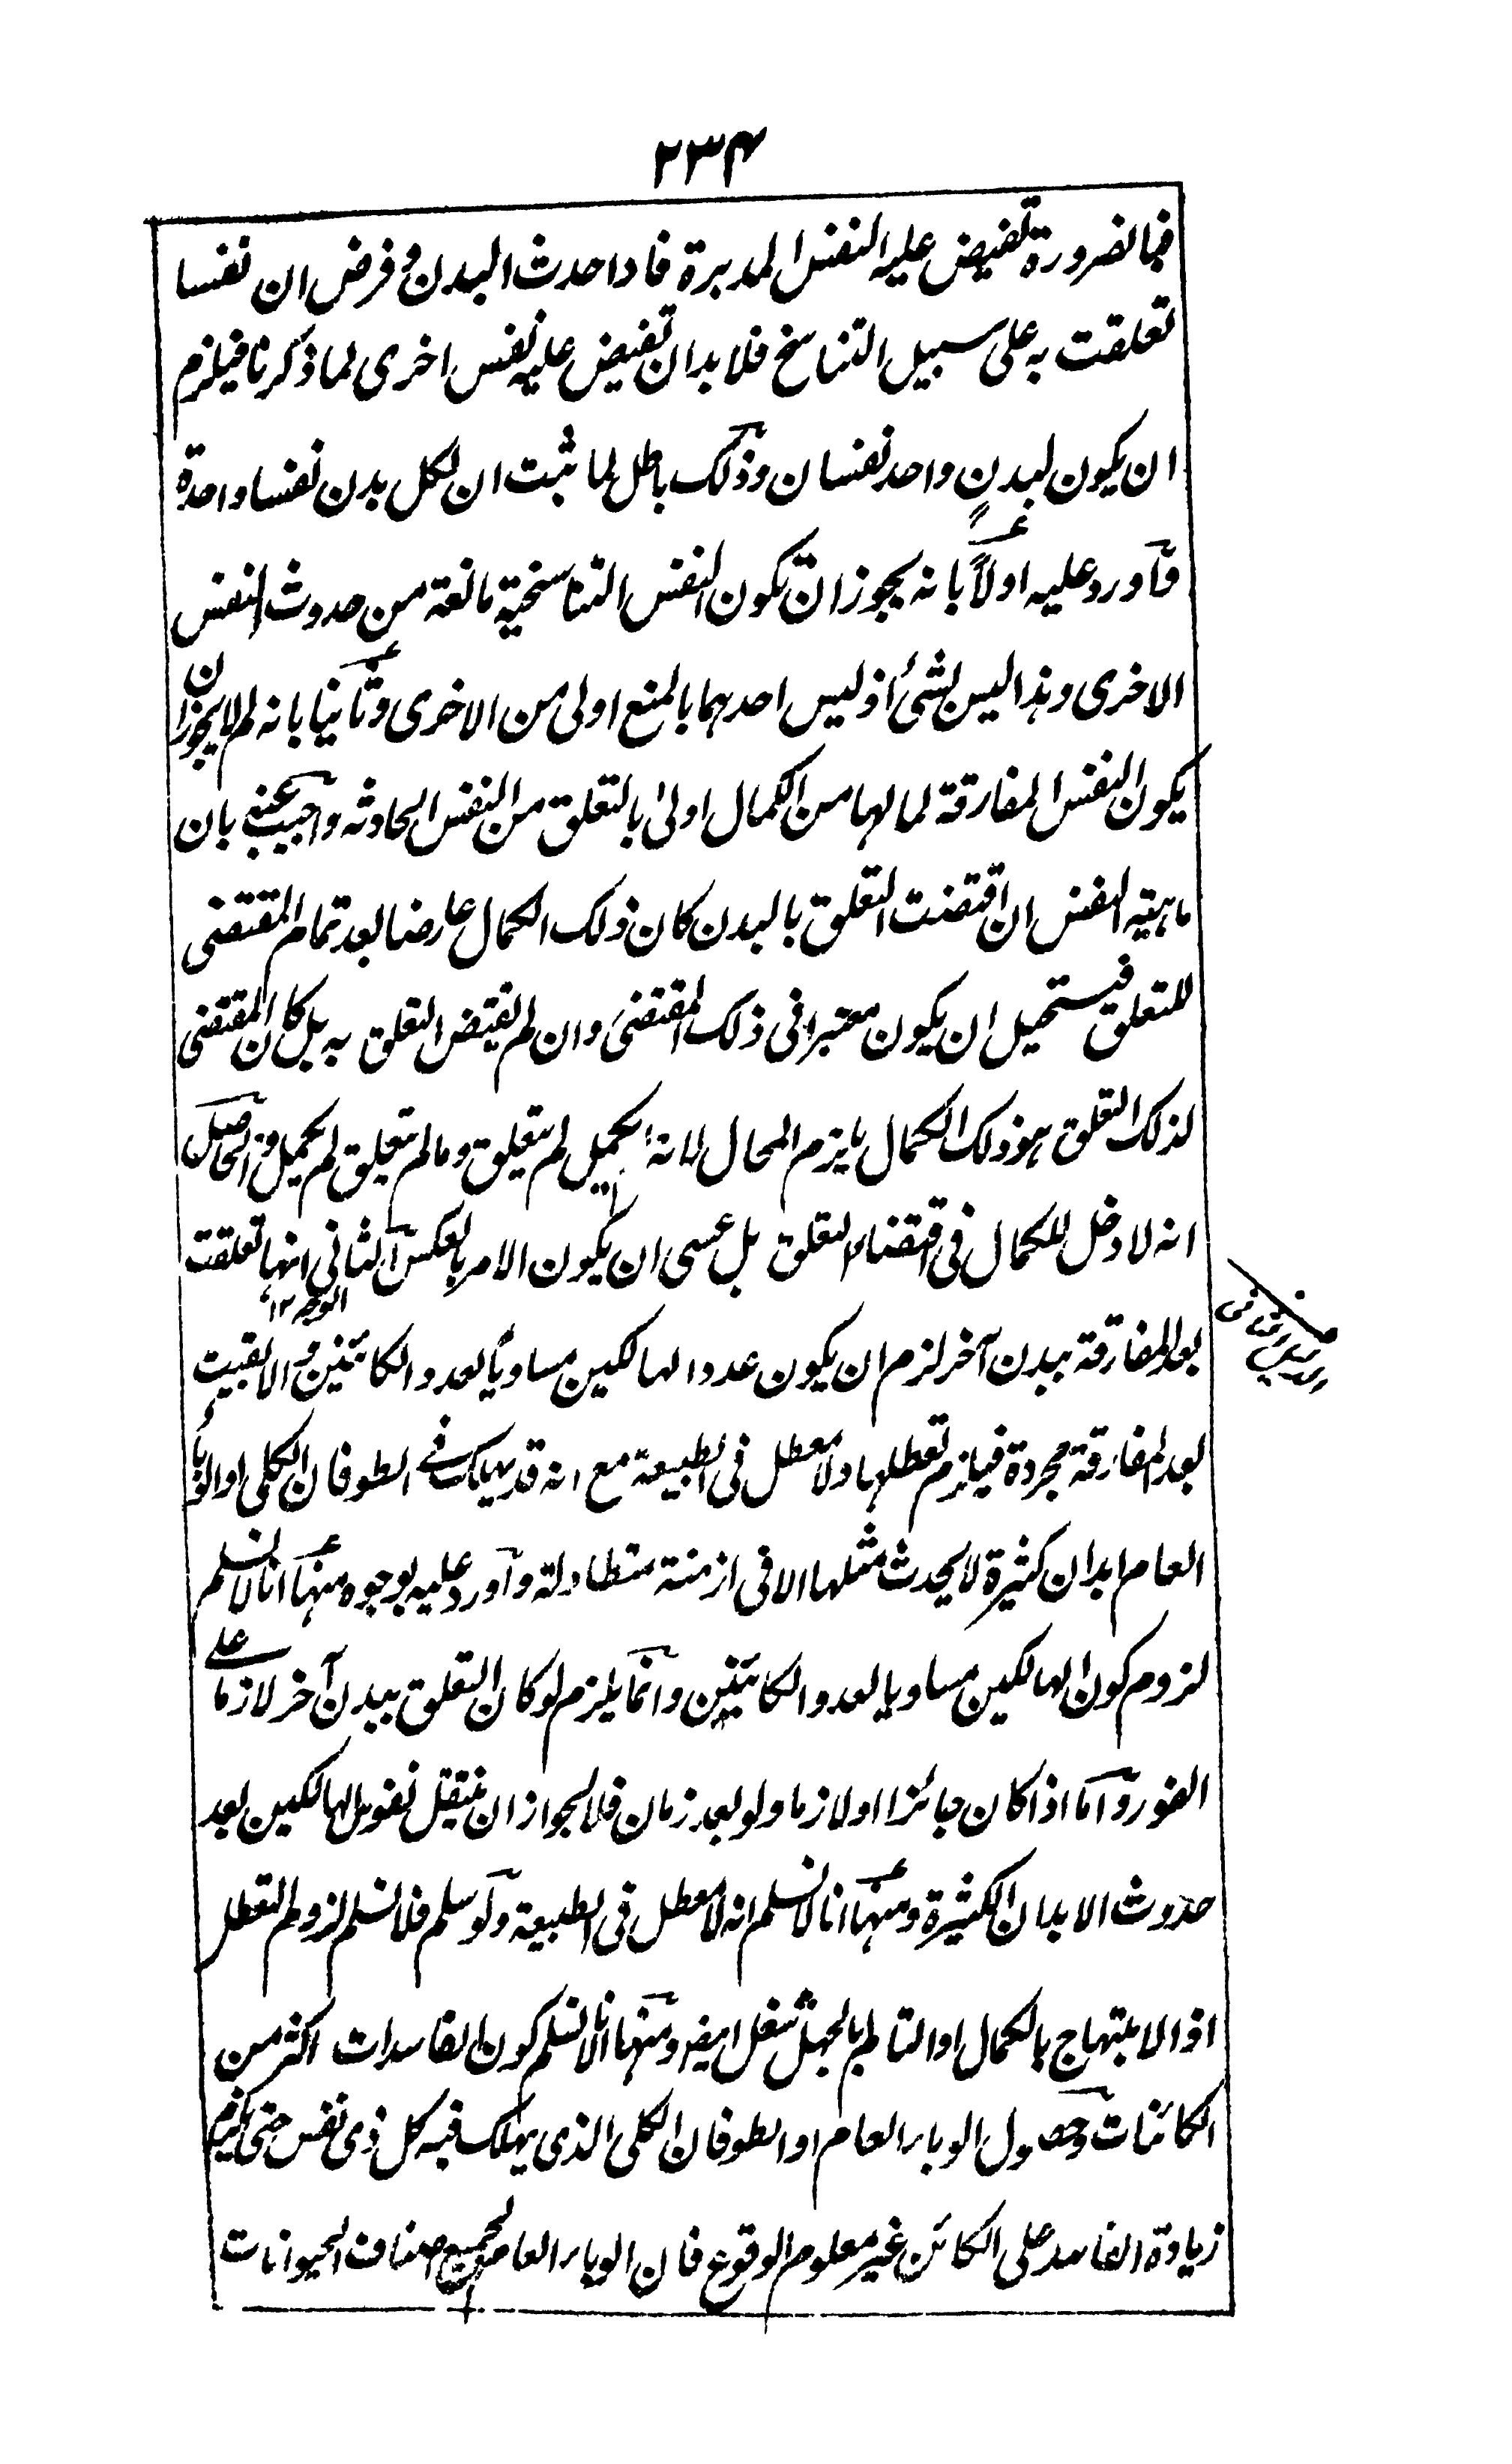 ۲۳۴
فبالضرورة تفيض عليه النفس المدبرة فاذا حدث البدن وفرض ان نفسا
تعلقت به على سبيل التناسخ فلا بد ان تفيض عليه نفس اخرى لما ذكرنا فيلزم
ان يكون لبدن واحد نفسان وذلك باطل لما ثبت ان لكل بدن نفسا واحدة
وآورد عليه اولاً بانه يجوز ان تكون النفس التناسخية مانعة من حدوث النفس
الاخرى وهذا ليس بشئ اذ ليس احدهما بالمنع اولى من الاخرى وثانيا بانه لم لا يجوز ان
يكون النفس المفارقة لما لها من الكمال اولى بالتعلق من النفس الحادثه واجيب عنه بان
ماهيته النفس ان اقتضت التعلق بالبدن كان ذلك الكمال عارضا بعد تمام المقتضى
للتعلق فيستحيل ان يكون معتبرا فى ذلك المقتضى وان لم يقتض التعلق به بل كان المقتضى
لذلك التعلق هو ذلك الكمال يلزم المحال لانه لم يكمل لم يتعلق وما لم يتعلق لم يكمل والحاصل
انه لا دخل للكمال فى اقتضاء التعلق بل عسى ان يكون الامر بالعكس الثانى انها تعلقت
الوجه ۱۲
بعد المفارقة ببدن آخر لزم ان يكون عدد الهالكين مساوياً لعدد الكائنين والا لبقيت
بعد المفارقة مجردة فيلزم تعطلها ولا معطل فى الطبيعة مع انه قد يهلك فے الطوفان الكلى او الوباء
العام ابدان كثيرة لا يحدث مثلها الا فى ازمنة متطاولة وآورد عليه بوجوه منها انا لا نسلم
لزوم كون الهالكين مساويا لعدد الكائنين وانما يلزم لو كان التعلق ببدن آخر لازما على
الفور وآما اذا كان جائزا او لازما ولو بعد زمان فلا لجواز ان ينتقل نفوس الهالكين بعد
حدوث الابدان الكثيرة ومنها انا لا نسلم انه لا معطل فى الطبيعة ولو سلم فلا نسلم لزوم التعطل
اذ الابتهاج بالكمال او التالم بالجهل شغل ايضا ومنها انا لا نسلم كون الفاسدات اكثر من
الكائنات وحصول الوباء العام او الطوفان الكلى الذى يهلك فيه كل ذى نفس حتى يلزم
زيادة الفاسد على الكائن غير معلوم الوقوع فان الوباء العام لجميع اصناف الحيوانات